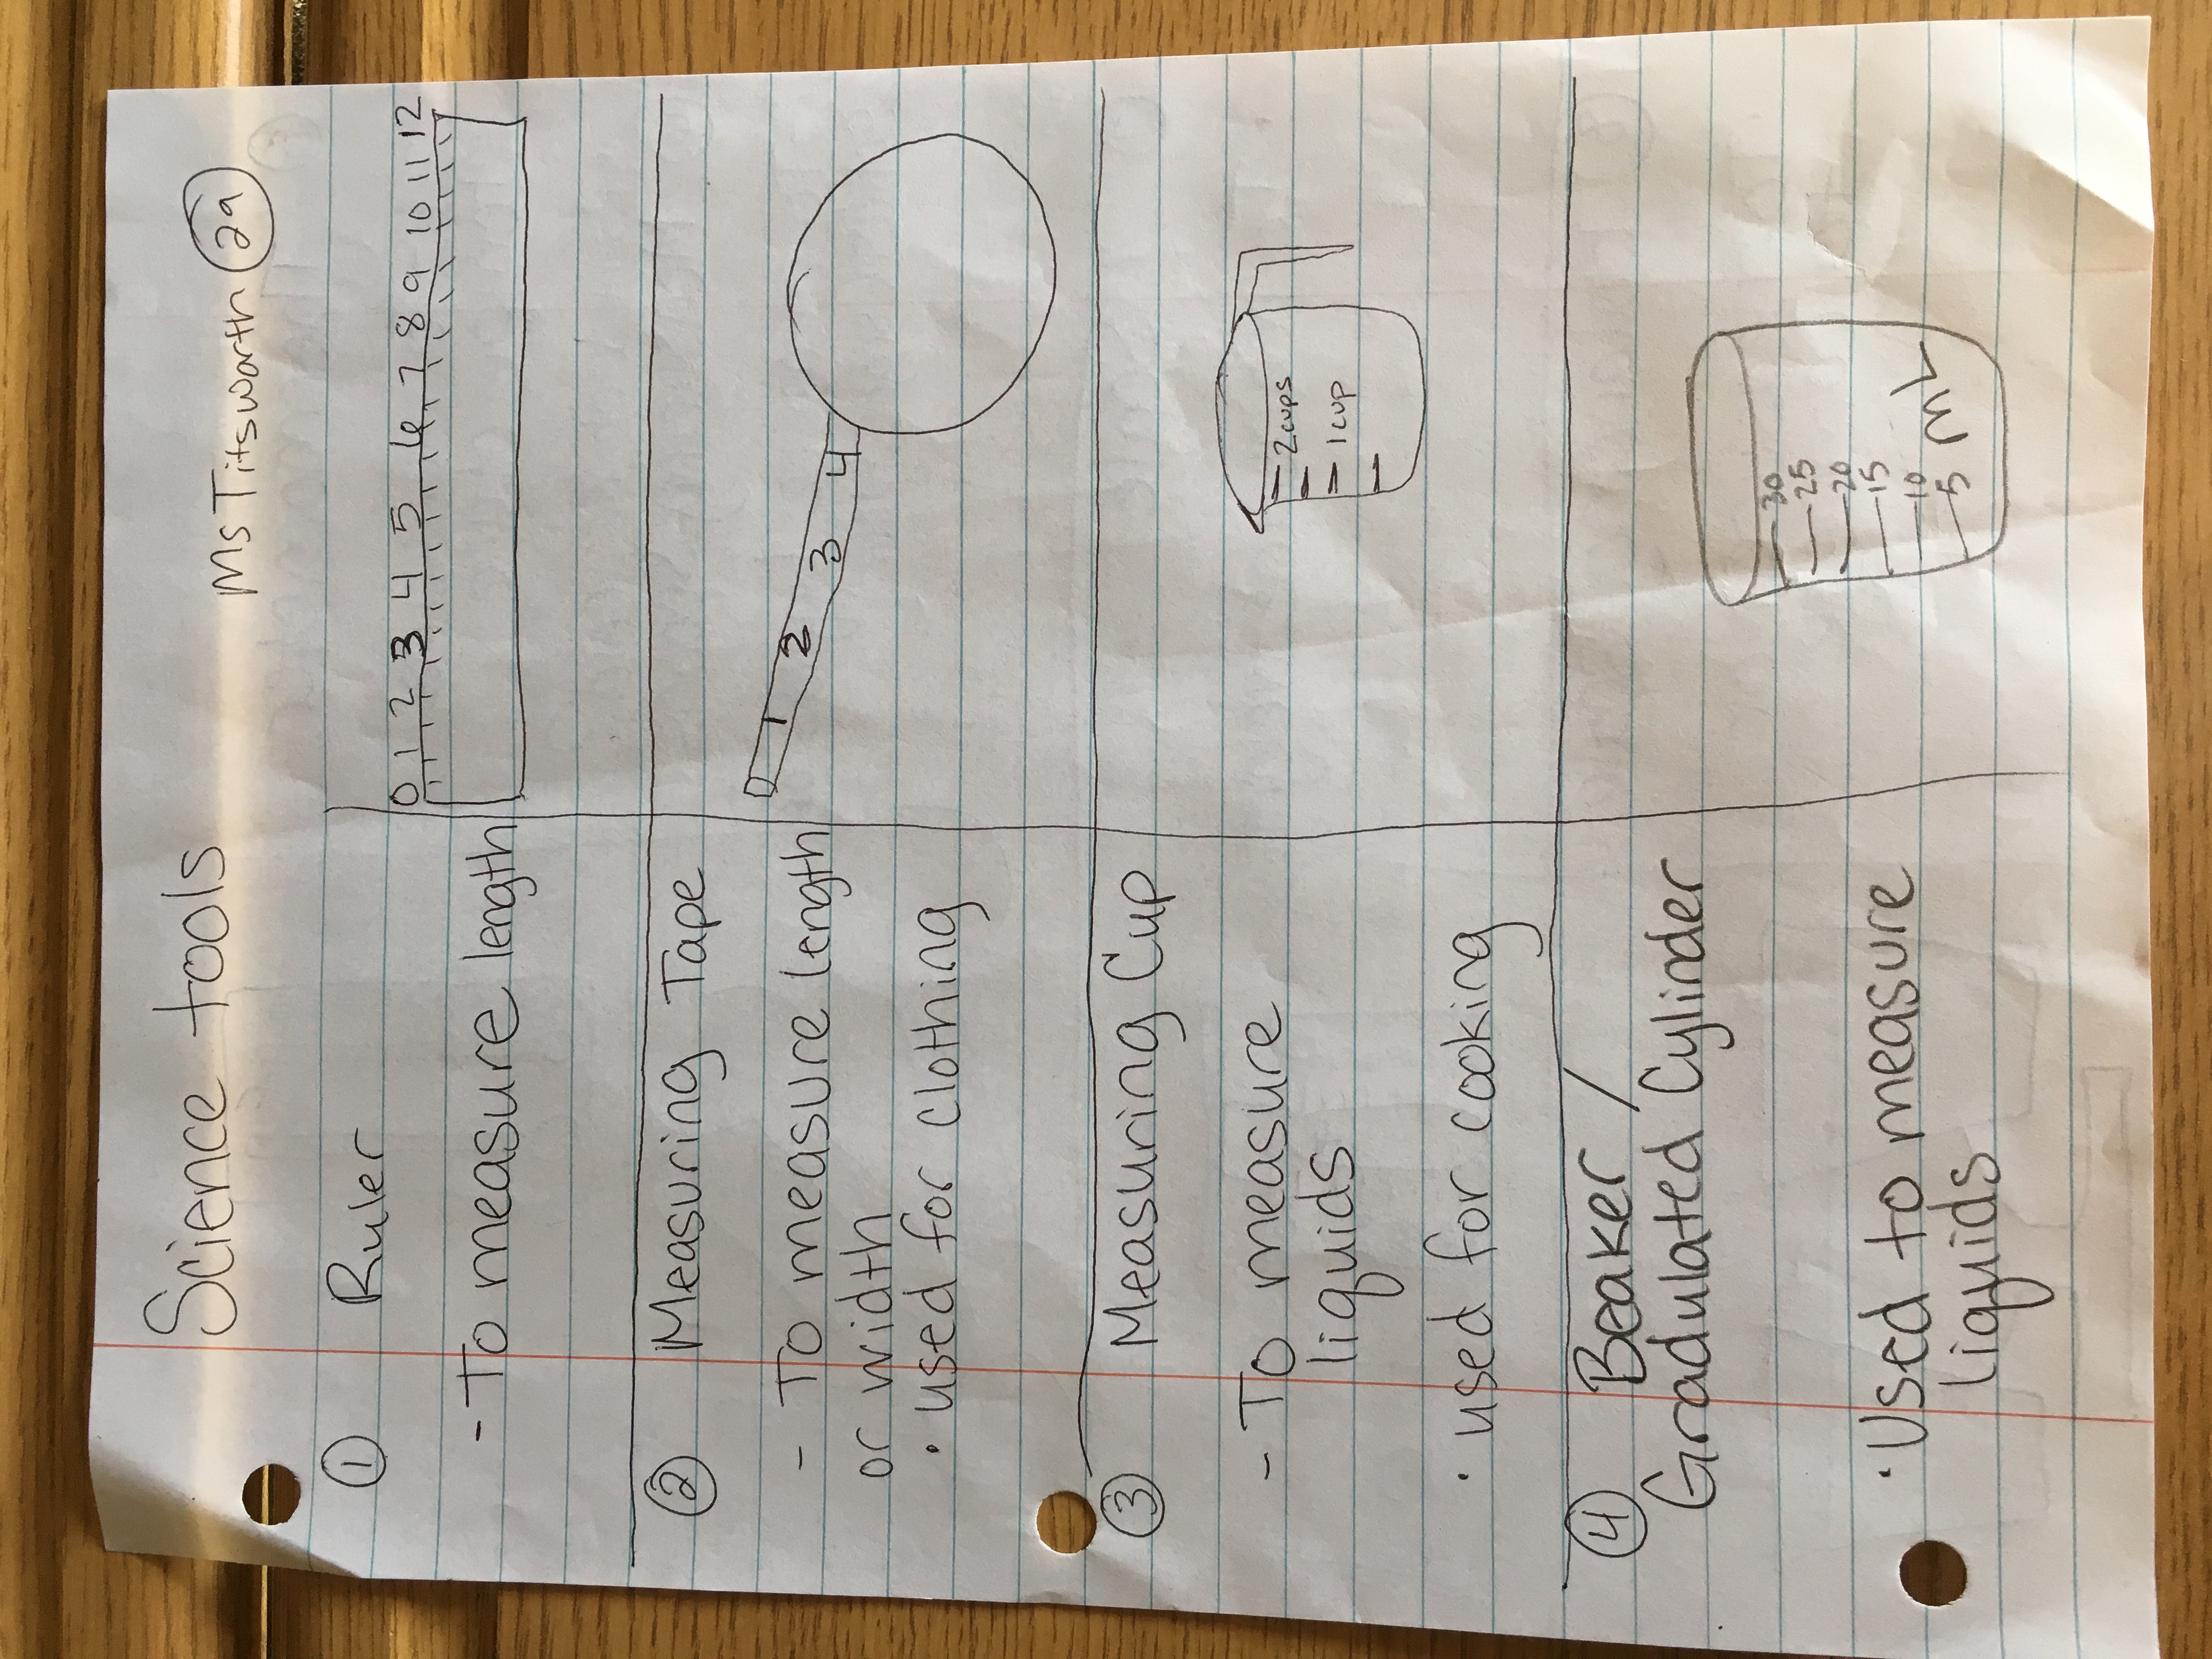 Science tools
Ms Titsworth 29
1 Ruler
- To measure length
0 1 2 3 4 5 6 7 8 9 10 11 12
2 Measuring Tape
- To measure length
or width
· used for clothing
1 2 3 4
3 Measuring Cup
- To measure
liquids
· used for cooking
2cups
1cup
4 Beaker /
Gradulated Cylinder
· Used to measure
liquids
30
25
20
15
10
5
mL